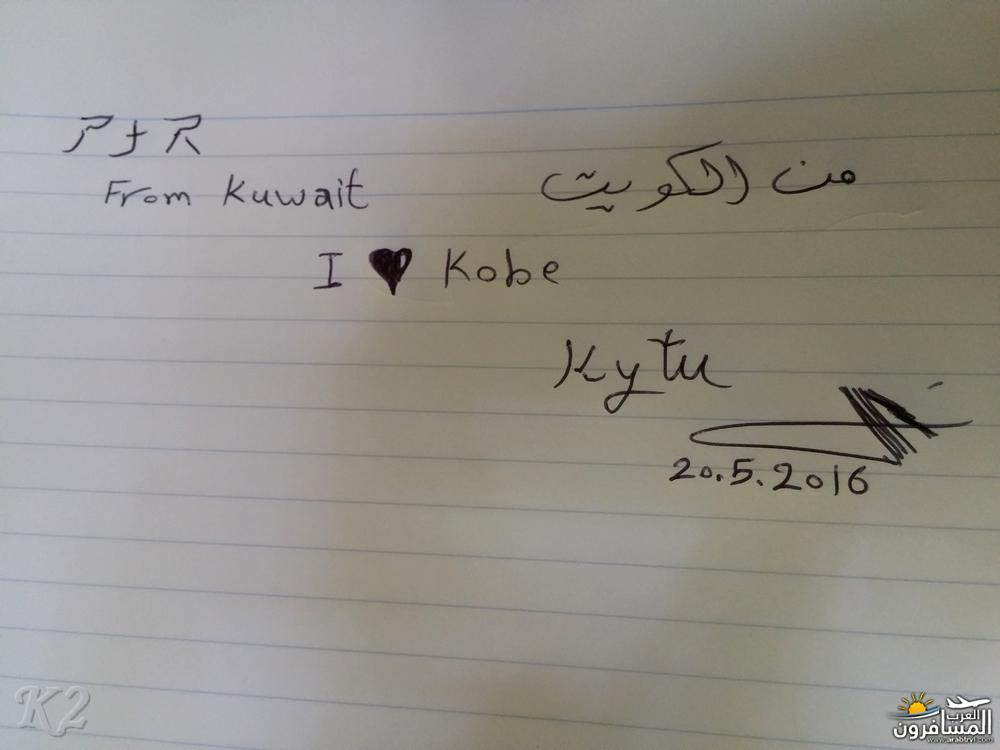 アナス
From Kuwait
من الكويت
I ♥ Kobe
Kytu
20.5.2016
K2
العرب
المسافرون
www.arabtrvl.com